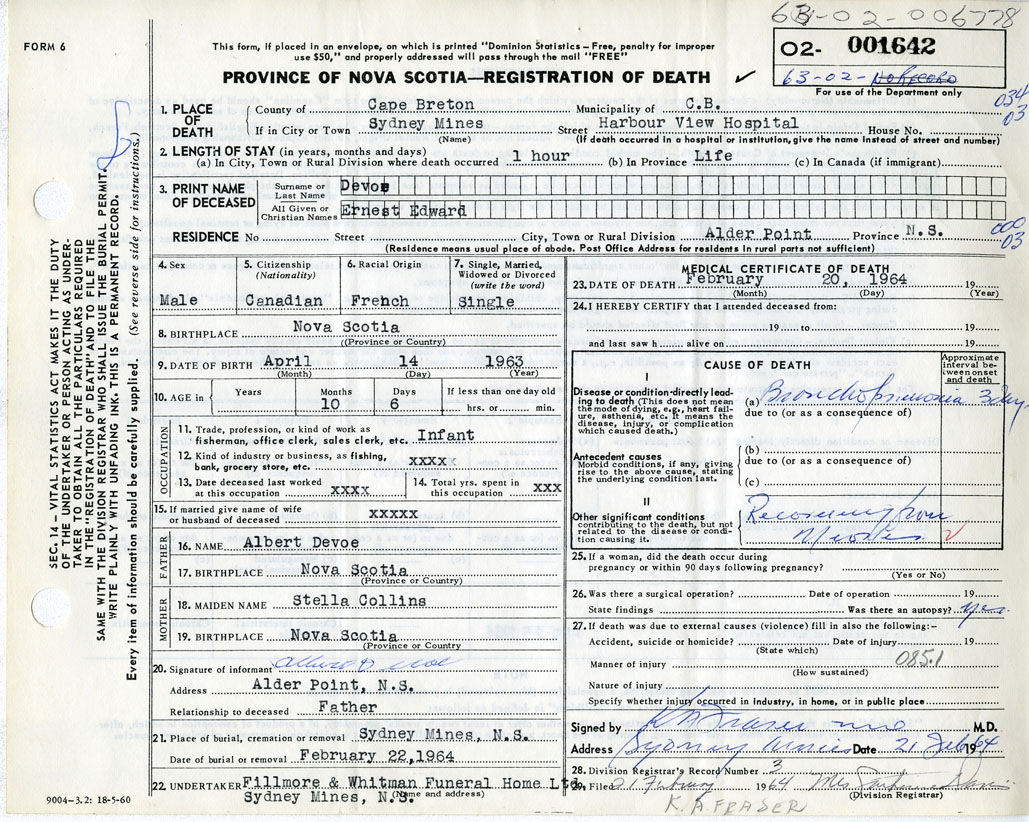 63-02-006778
FORM 6
This form, if placed in an envelope, on which is printed "Dominion Statistics – Free, penalty for improper
use $50," and properly addressed will pass through the mail "FREE"
02- 001642
63-02- NO RECORD
For use of the Department only
PROVINCE OF NOVA SCOTIA—REGISTRATION OF DEATH ✓
034
03
1. PLACE OF DEATH
County of Cape Breton Municipality of C.B.
If in City or Town Sydney Mines Street Harbour View Hospital House No.
(Name) (If death occurred in a hospital or institution, give the name instead of street and number)
2. LENGTH OF STAY (in years, months and days)
(a) In City, Town or Rural Division where death occurred 1 hour (b) In Province Life (c) In Canada (if immigrant)
3. PRINT NAME OF DECEASED
Surname or Last Name Devoe
All Given or Christian Names Ernest Edward
RESIDENCE No Street City, Town or Rural Division Alder Point Province N.S.
(Residence means usual place of abode. Post Office Address for residents in rural parts not sufficient)
000
03
SEC. 14 – VITAL STATISTICS ACT MAKES IT THE DUTY
OF THE UNDERTAKER OR PERSON ACTING AS UNDER-
TAKER TO OBTAIN ALL THE PARTICULARS REQUIRED
IN THE "REGISTRATION OF DEATH" AND TO FILE THE
SAME WITH THE DIVISION REGISTRAR WHO SHALL ISSUE THE BURIAL PERMIT.
WRITE PLAINLY WITH UNFADING INK. THIS IS A PERMANENT RECORD.
Every item of information should be carefully supplied. (See reverse side for instructions.)
4. Sex
Male
5. Citizenship
(Nationality)
Canadian
6. Racial Origin
French
7. Single, Married,
Widowed or Divorced
(write the word)
Single
8. BIRTHPLACE Nova Scotia
(Province or Country)
9. DATE OF BIRTH April 14 1963
(Month) (Day) (Year)
10. AGE in
Years
Months 10
Days 6
If less than one day old
hrs. or min.
OCCUPATION
11. Trade, profession, or kind of work as
fisherman, office clerk, sales clerk, etc. Infant
12. Kind of industry or business, as fishing,
bank, grocery store, etc. xxxx
13. Date deceased last worked
at this occupation xxxx
14. Total yrs. spent in
this occupation xxx
15. If married give name of wife
or husband of deceased xxxxx
FATHER
16. NAME Albert Devoe
17. BIRTHPLACE Nova Scotia
(Province or Country)
MOTHER
18. MAIDEN NAME Stella Collins
19. BIRTHPLACE Nova Scotia
(Province or Country
20. Signature of informant Albert Devoe
Address Alder Point, N.S.
Relationship to deceased Father
21. Place of burial, cremation or removal Sydney Mines, N.S.
Date of burial or removal February 22,1964
22. UNDERTAKER Fillmore & Whitman Funeral Home Ltd.
Sydney Mines, N.S. (Name and address)
9004-3.2: 18-5-60
MEDICAL CERTIFICATE OF DEATH
23. DATE OF DEATH February 20, 1964 19
(Month) (Day) (Year)
24. I HEREBY CERTIFY that I attended deceased from:
19 to 19
and last saw h alive on 19
CAUSE OF DEATH
Approximate
interval be-
tween onset
and death
I
Disease or condition directly lead-
ing to death (This does not mean
the mode of dying, e.g., heart fail-
ure, asthenia, etc. It means the
disease, injury, or complication
which caused death.)
(a) Bronchopneumonia 3 days
due to (or as a consequence of)
Antecedent causes
Morbid conditions, if any, giving
rise to the above cause, stating
the underlying condition last.
(b)
due to (or as a consequence of)
(c)
II
Other significant conditions
contributing to the death, but not
related to the disease or condi-
tion causing it.
Recovering from
Measles
25. If a woman, did the death occur during
pregnancy or within 90 days following pregnancy?
(Yes or No)
26. Was there a surgical operation? Date of operation 19
State findings Was there an autopsy? Yes.
27. If death was due to external causes (violence) fill in also the following:–
Accident, suicide or homicide? Date of injury 19
(State which)
Manner of injury 085.1
(How sustained)
Nature of injury
Specify whether injury occurred in Industry, in home, or in public place
Signed by K A Fraser M.D.
Address Sydney Mines Date 21 Feb 1964
28. Division Registrar's Record Number 3
29. Filed 21 February 1964 Mrs
(Division Registrar)
K. A FRASER